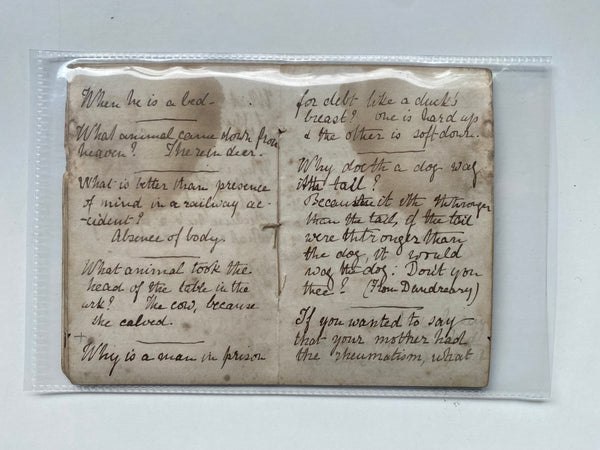 When he is a bed-
What animal came down from
heaven? The rein deer.
What is better than presence
of mind in a railway ac-
-cident?
Absence of body.
What animal took the
head of the table in the
ark? The cow, because
she calved.
Why is a man in prison
for debt like a duck's
breast? one is hard up
& the other is soft down.
Why doth a dog wag
ith tail?
Becauthe it ith thtronger
than the tail, if the tail
were thtronger than
the dog, it would
wag the dog. Don't you
thee? (From Dundreary)
If you wanted to say
that your mother had
the rheumatism, what